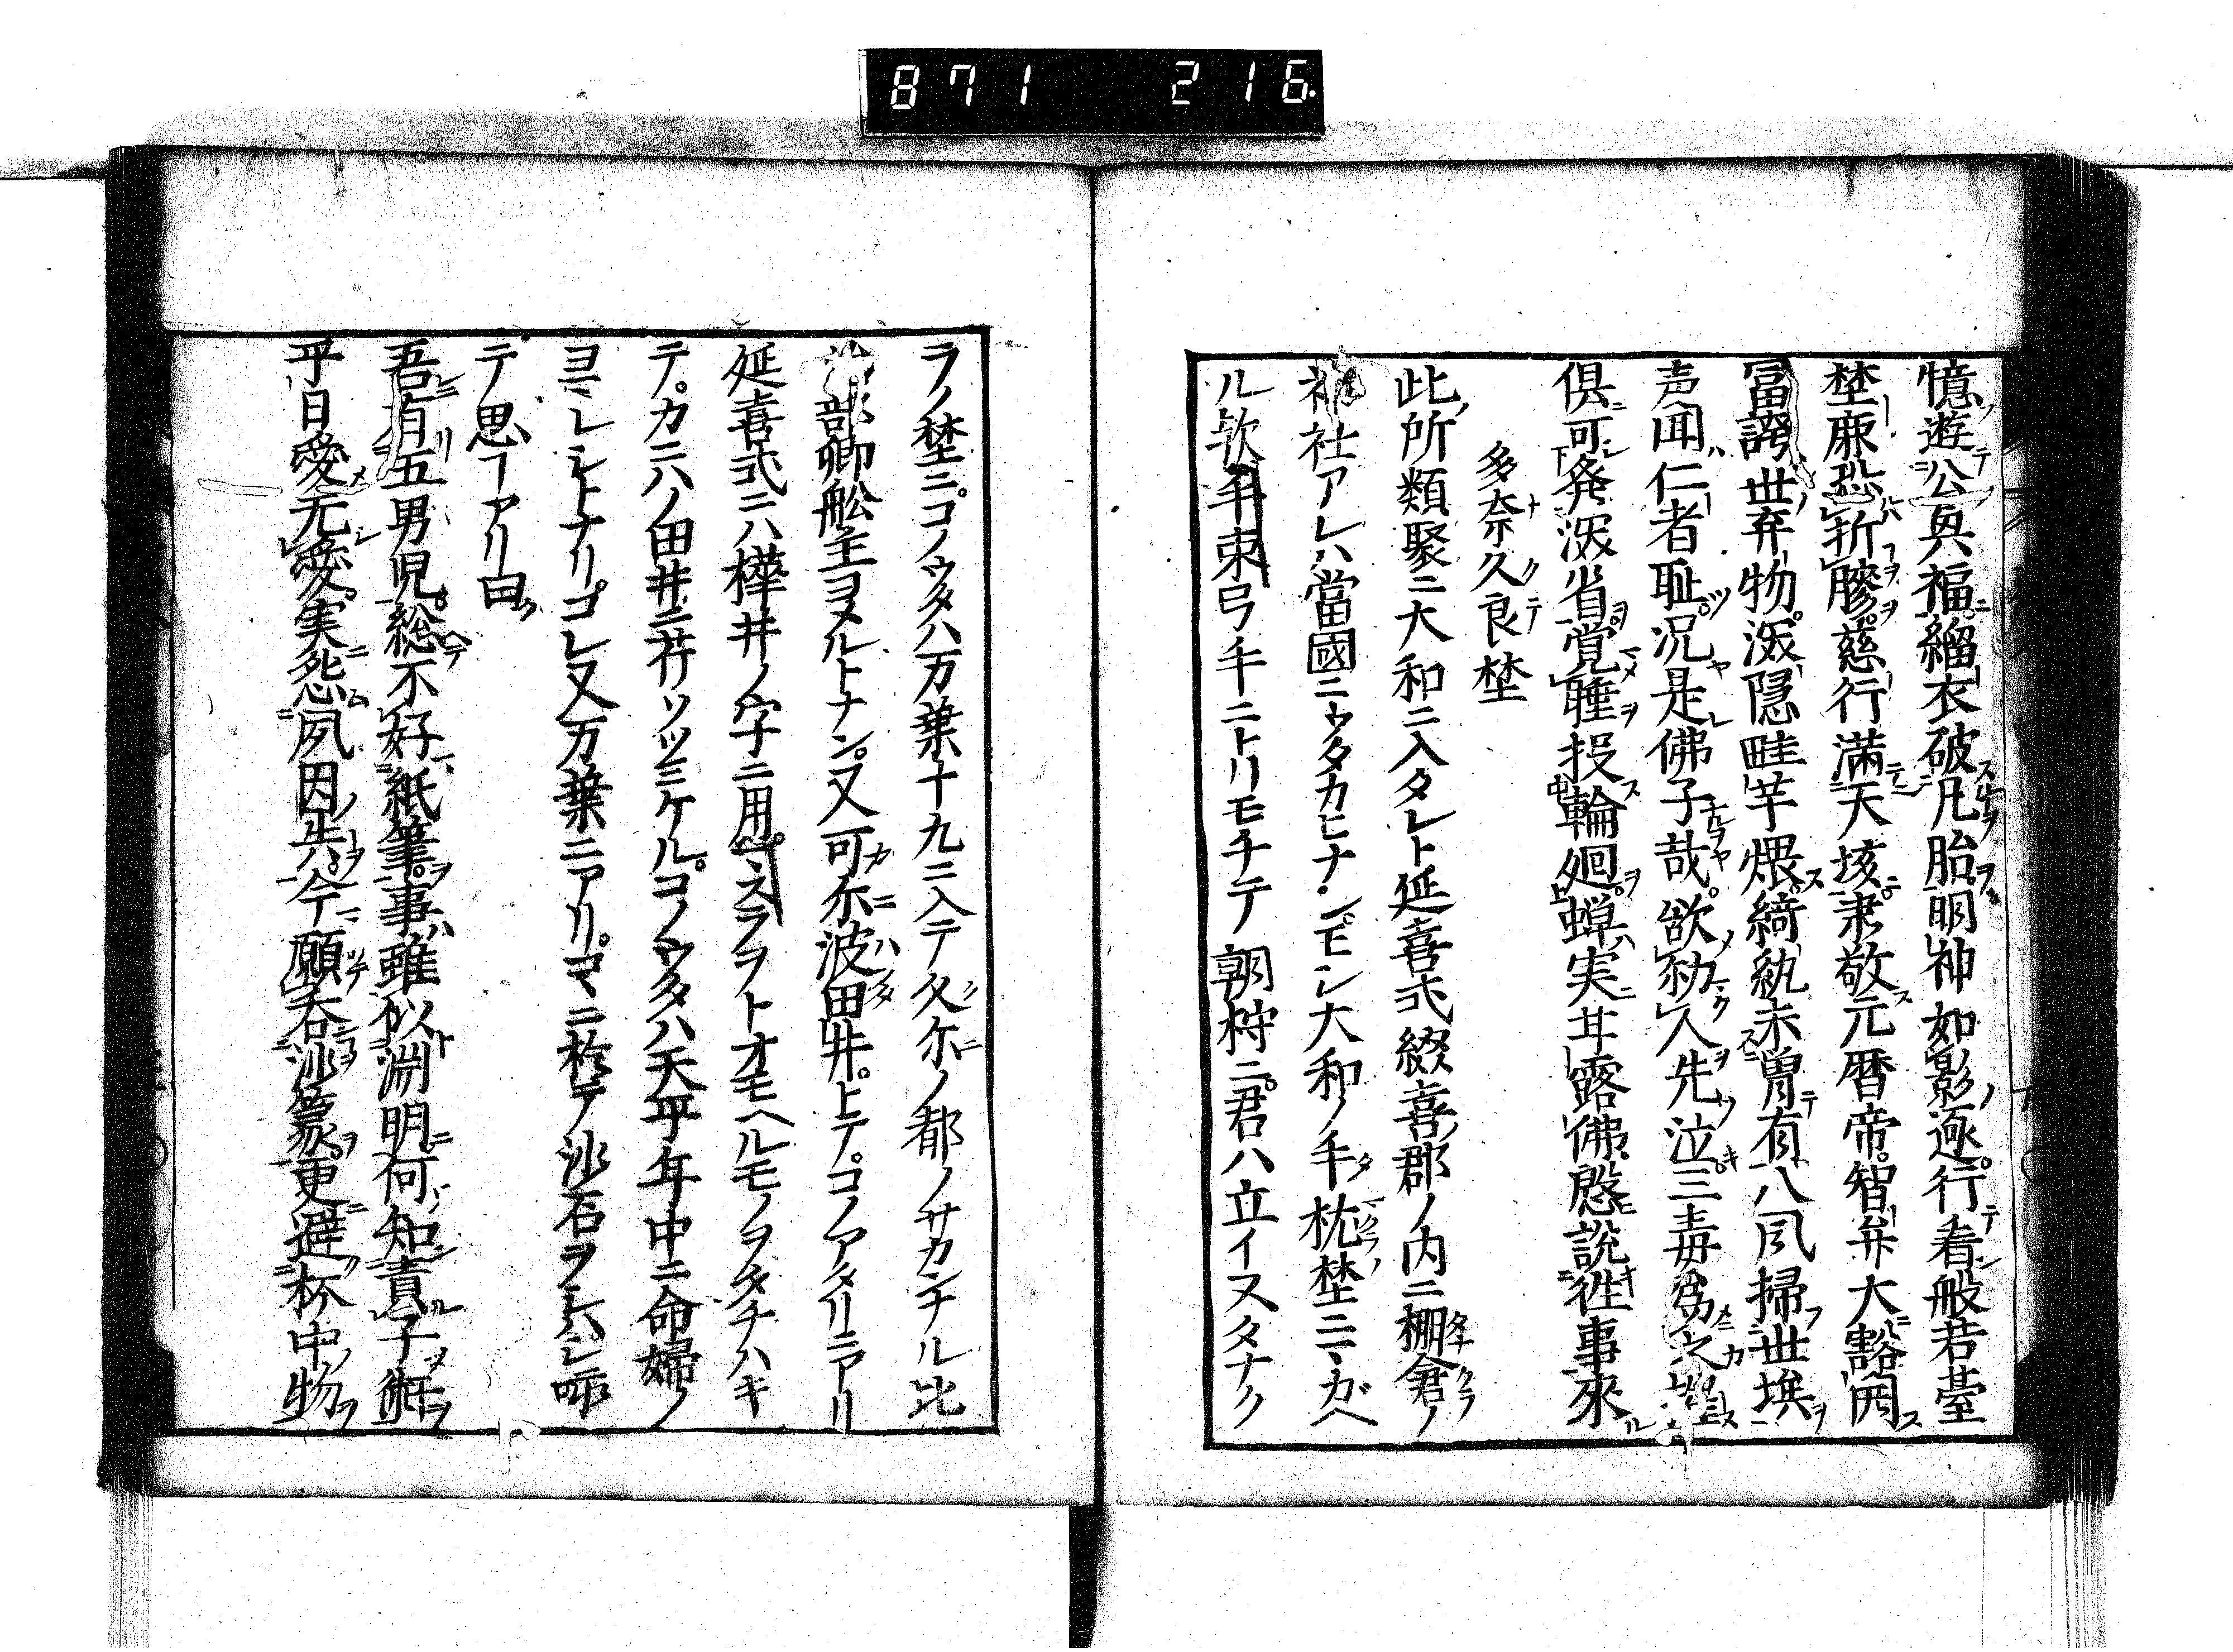 871 216
憶遊公與福緇衣破凡胎明神如影逐行看般若臺
埜鹿恐折膠慈行滿天垓肅敬元暦帝智弁大豁罔
富誇世弃物泯隠畦芋煨綺紈未曽有八风掃世埃
声聞仁者耻况是佛子哉欲勧人先泣三毒為之
倶可発深省覚睡投輪廻蝉実甘露佛慇説徃事來
多奈久良埜
此所類聚ニ大和ニ入タレト延喜式綴喜郡ノ内ニ棚倉ノ
神社アレハ當國ニウタカヒナシモシ大和ノ手枕埜ニマガヘ
ル欤手束弓手ニトリモチテ朝狩ニ君ハ立イヌタナク
ラノ埜ニコノウタハ万葉十九ニ入テ久尓ノ都ノサカンナル比
部卿舩主ヨメルトナン又可尓波田井トテコノアタリニアリ
延喜式ニハ樺井ノ字ニ用マスラヲトオモヘルモノヲタチハキ
テカニハノ田井ニ芹ソツミケルコノウタハ天平年中ニ命婦ノ
ヨミレシトナリコレ又万葉ニアリコヽニ於テ沙石ヲ シ呼
テ思フヿアリ曰
吾有五男児総不好紙筆事雖似淵明何知責子術
平日愛无愛実怨夙因失今願呑泌篆更避杯中物